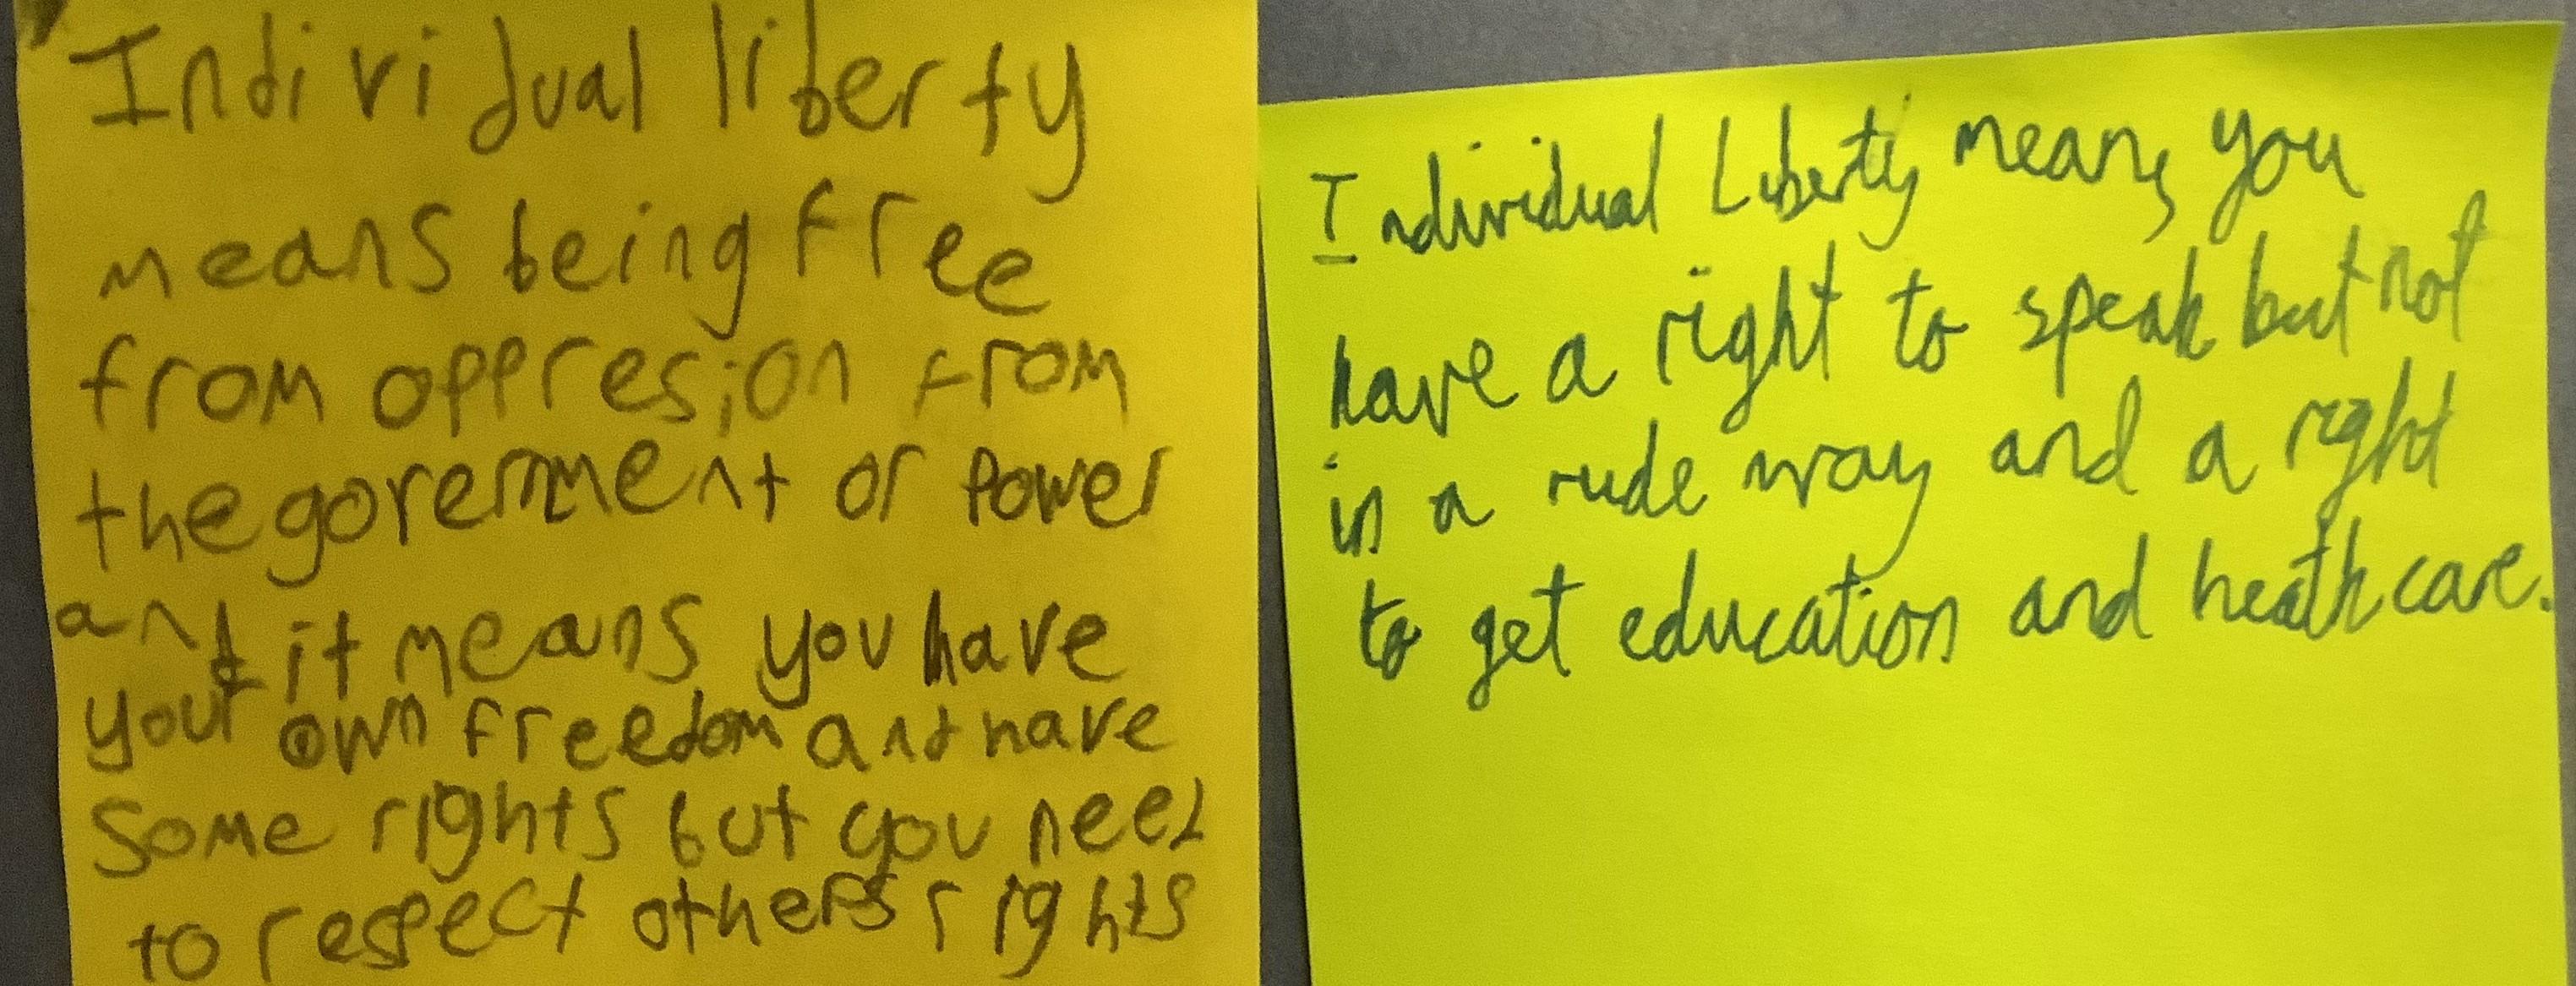 Individual liberty
means being free
from oppresion from
the goverment or power
and it means you have
your own freedom and have
some rights but you need
to respect others rights
Individual Liberty means you
have a right to speak but not
in a rude way and a right
to get education and heathcare.